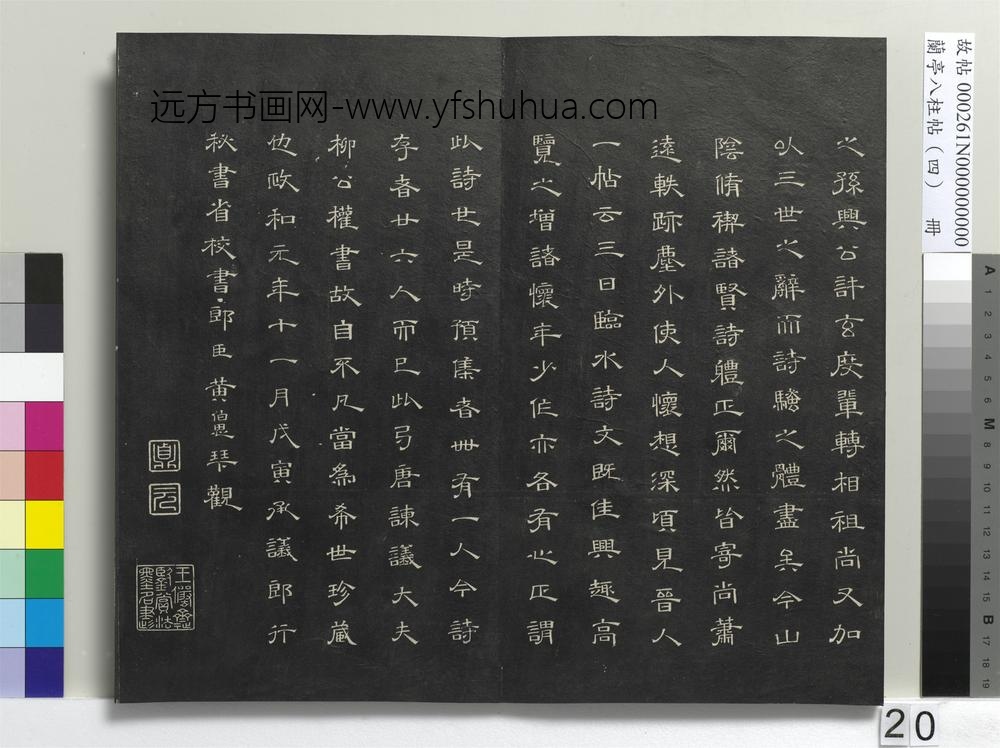 远方书画网-www.yfshuhua.com
故帖 000261N000000000
蘭亭八柱帖（四） 冊
之孫興公許玄度輩轉相祖尚又加
以三世之辭而詩騷之體盡矣今山
陰脩禊諸賢詩體正爾然皆寄尚蕭
遠軼跡塵外使人懷想深頃見晉人
一帖云三日臨水詩文既佳興趣高
覽之增諸懷年少作亦各有心正謂
此詩也是時預集者卌有一人今詩
存者廿六人而已此乃唐諫議大夫
柳公權書故自不凡當為希世珍藏
也政和元年十一月戊寅承議郎行
秘書省校書郎臣黃伯思琴觀
王儼齋
鑒賞法
書名畫
A 1 2 3 4 5 6 M 8 9 10 11 12 13 14 15 B 17 18 19
20